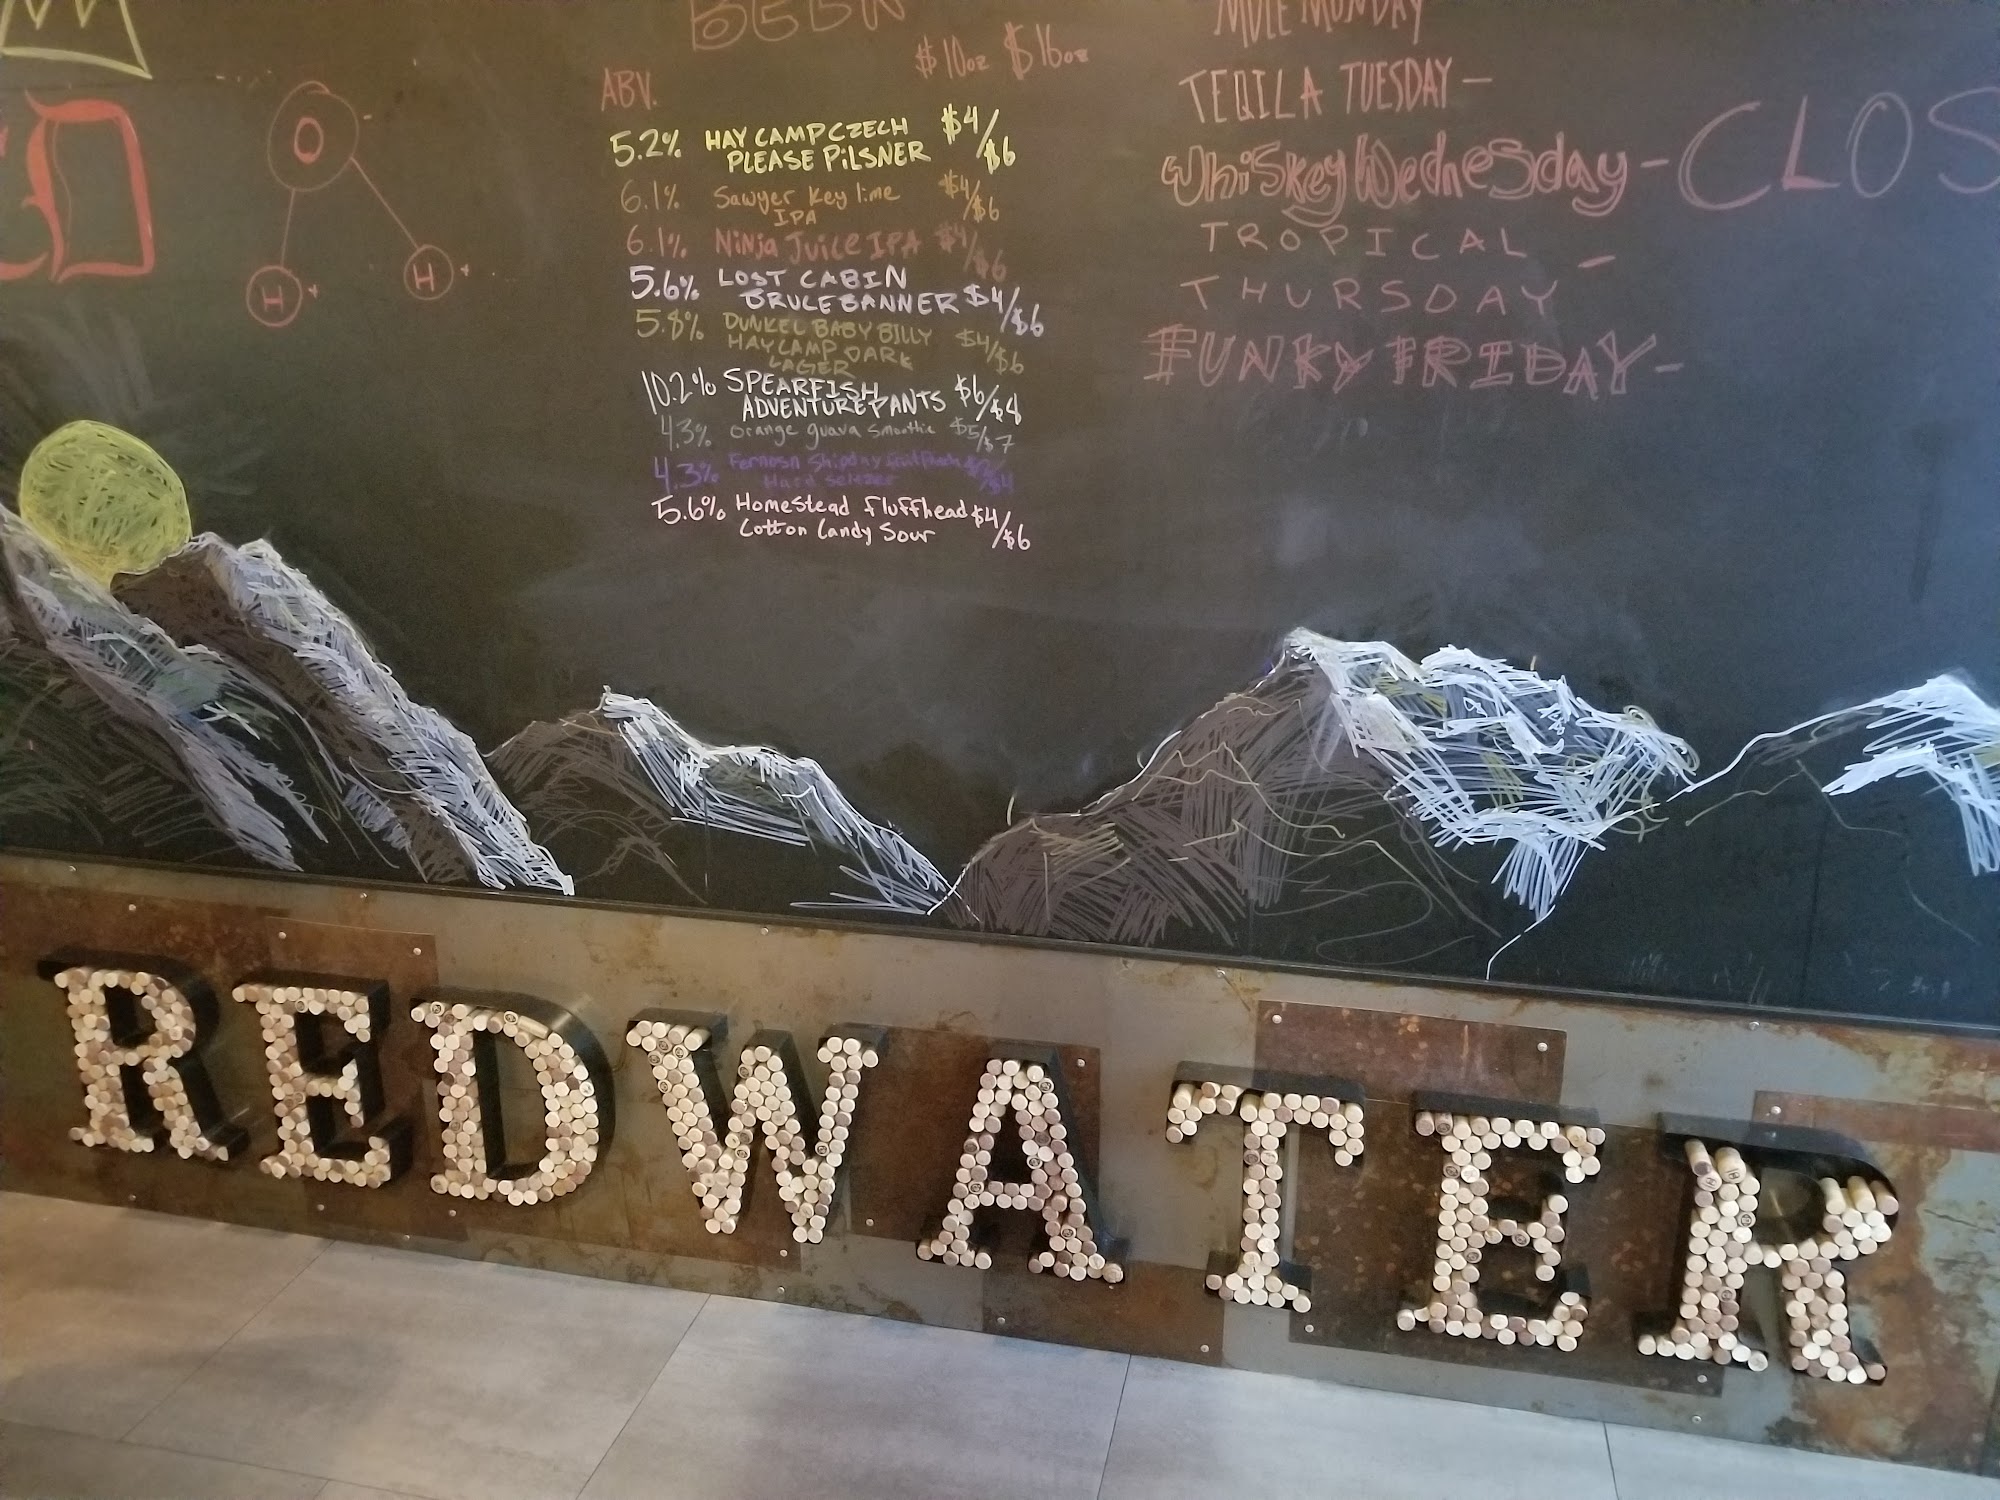 BEER
$10oz $16oz
ABV.
5.2% HAY CAMP CZECH $4/$6
PLEASE PiLSNER
6.1% Sawyer Key lime $4/$6
IPA
6.1% NiNja Juice IPA $4/$6
5.6% LOST CABIN
BRULE BANNER $4/$6
5.8% DUNKEL BABY BILLY $4/$6
HAY CAMP DARK
LAGER
10.2% SPEARFISH $6/$8
ADVENTURE PANTS
4.3% Orange guava Smoothie $5/$7
4.3%
Hard Seltzer
5.6% Homestead Fluffhead $4/$6
Cotton Candy Sour
MULE MUNDAY
TEQILA TUESDAY -
Whiskey Wednesday - CLOS
TROPICAL -
THURSDAY
FUNKY FRIDAY -
ED
O -
H + H +
REDWATER